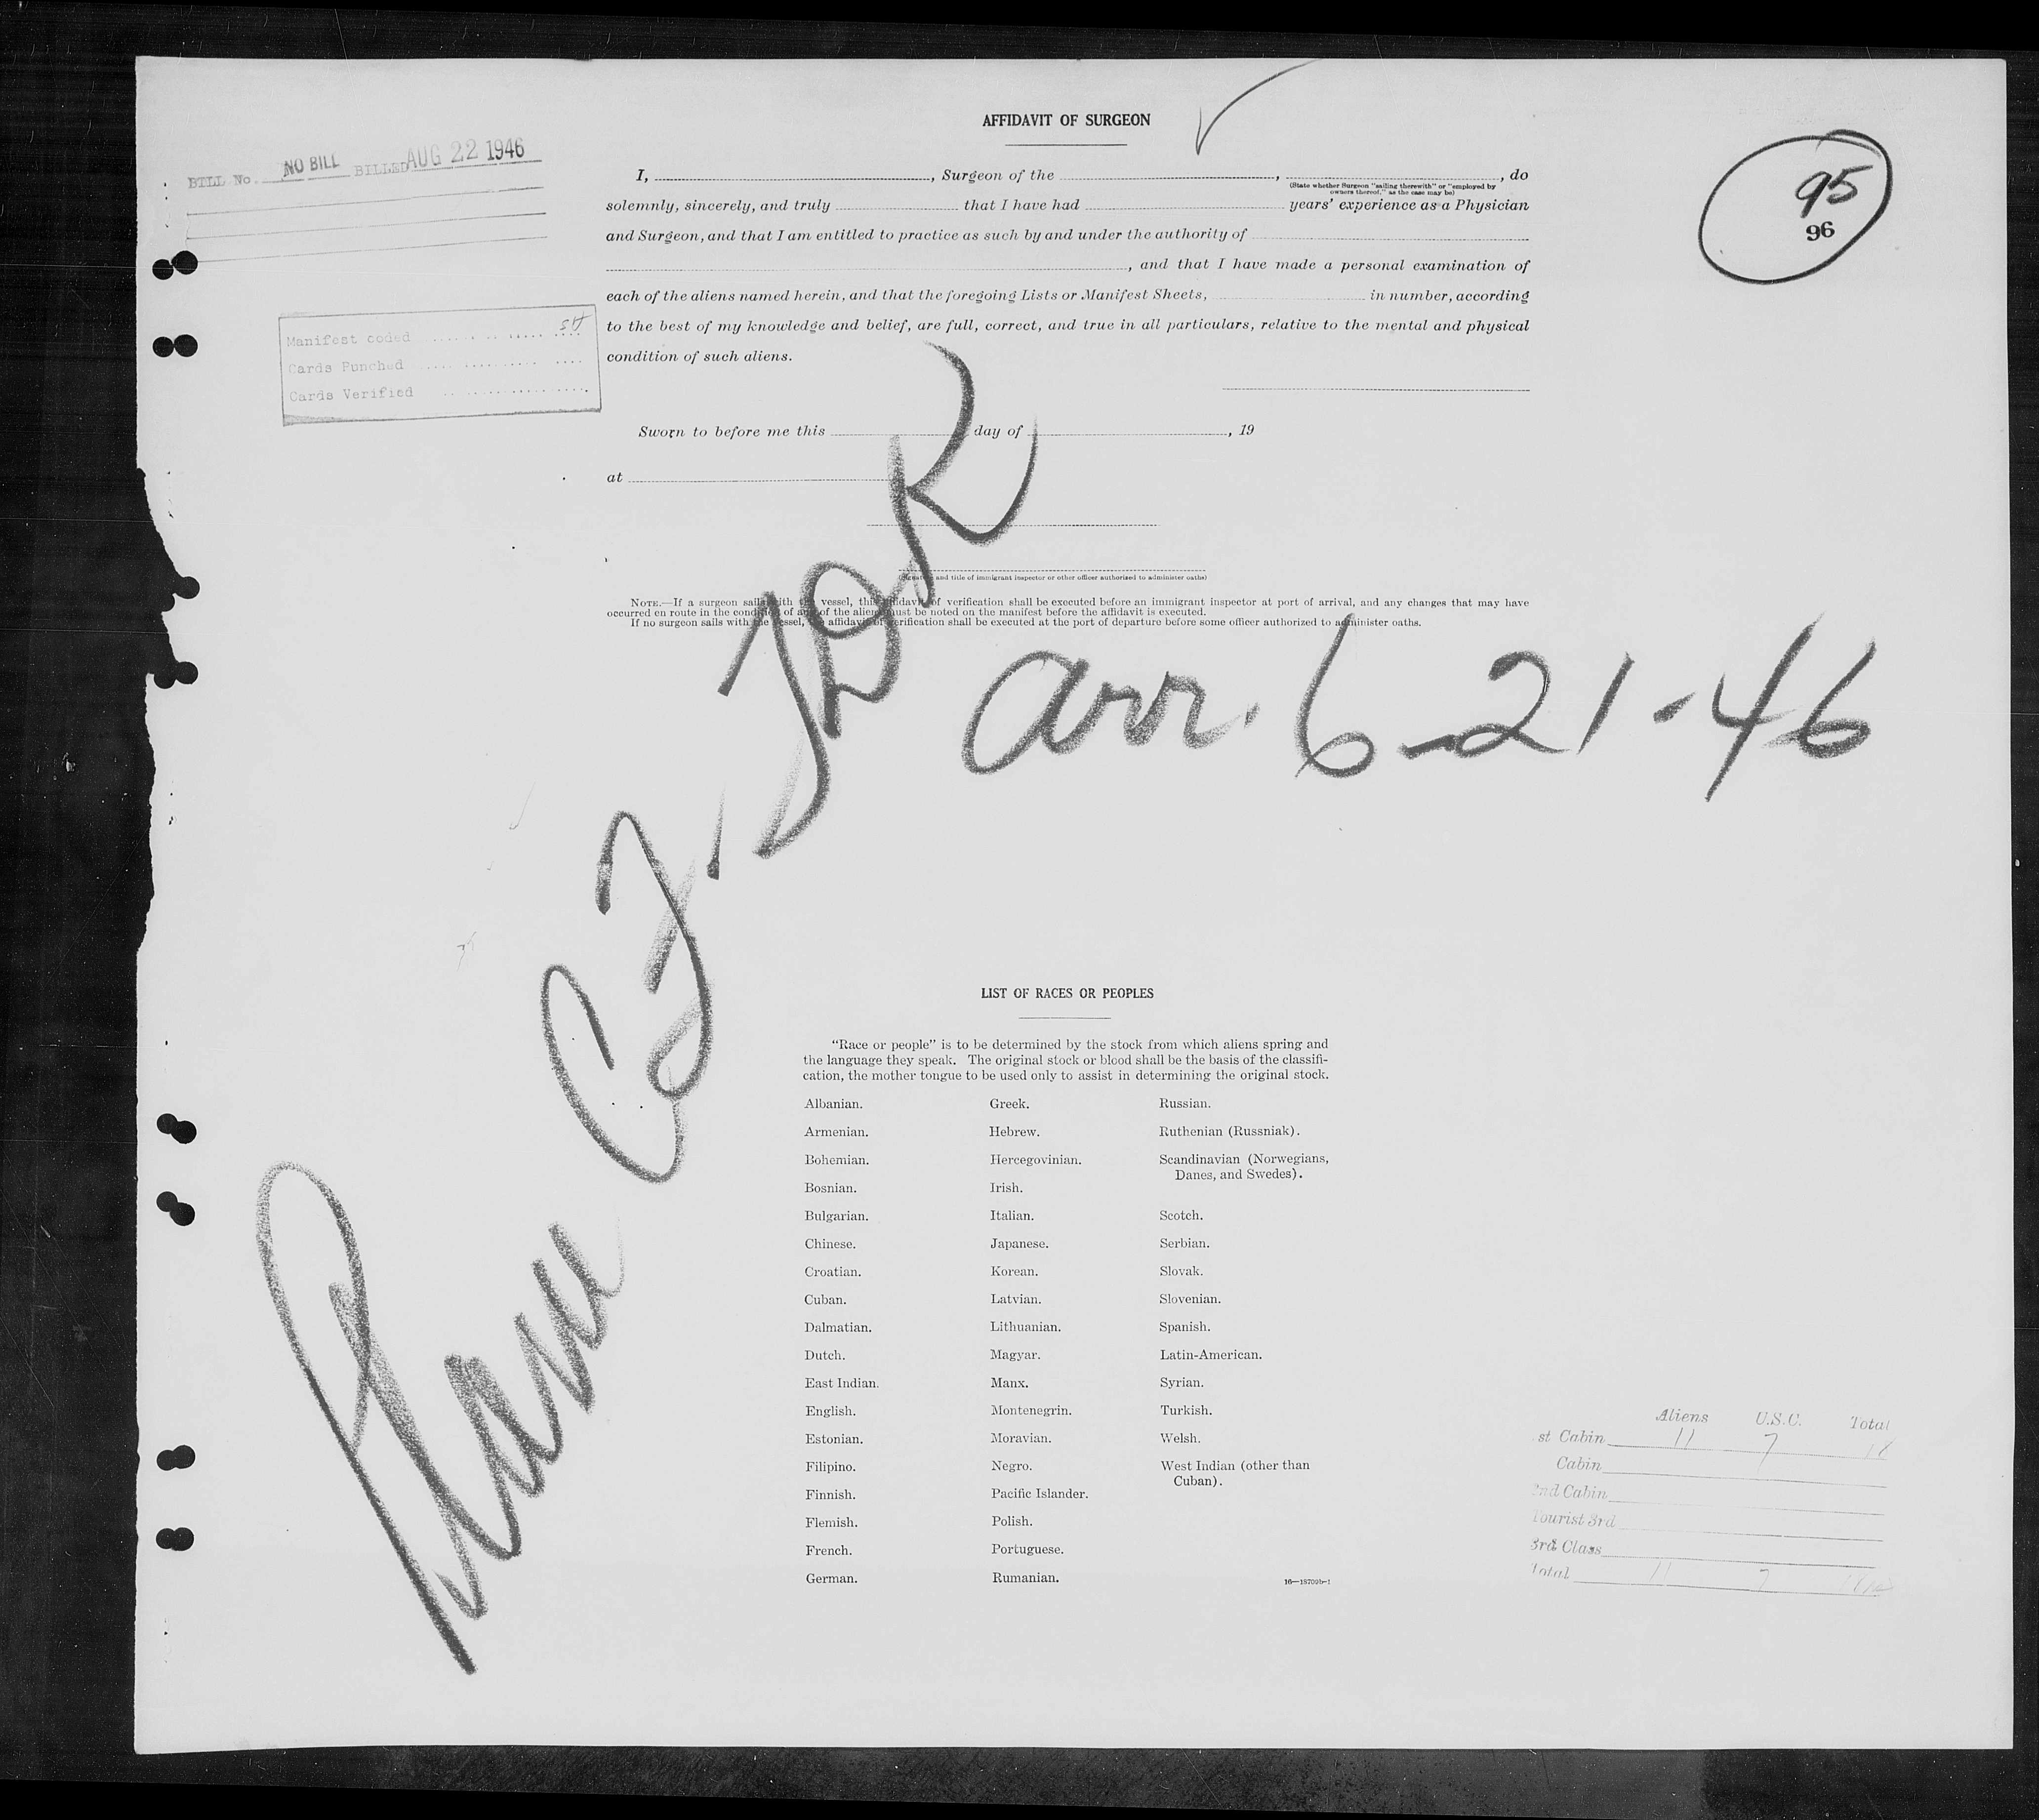 AFFIDAVIT OF SURGEON
BILL No. NO BILL BILLED AUG 22 1946
95
96
I, , Surgeon of the , , do
(State whether Surgeon "sailing therewith" or "employed by
owners thereof," as the case may be)
solemnly, sincerely, and truly that I have had years' experience as a Physician
and Surgeon, and that I am entitled to practice as such by and under the authority of
, and that I have made a personal examination of
each of the aliens named herein, and that the foregoing Lists or Manifest Sheets, in number, according
to the best of my knowledge and belief, are full, correct, and true in all particulars, relative to the mental and physical
condition of such aliens.
Manifest coded
Cards Punched
Cards Verified
Sworn to before me this day of , 19
at
(Signature and title of immigrant inspector or other officer authorized to administer oaths)
NOTE.—If a surgeon sails with the vessel, this affidavit of verification shall be executed before an immigrant inspector at port of arrival, and any changes that may have
occurred en route in the condition of any of the aliens must be noted on the manifest before the affidavit is executed.
If no surgeon sails with the vessel, the affidavit of verification shall be executed at the port of departure before some officer authorized to administer oaths.
arr. 6-21-46
Plane
LIST OF RACES OR PEOPLES
"Race or people" is to be determined by the stock from which aliens spring and
the language they speak. The original stock or blood shall be the basis of the classifi-
cation, the mother tongue to be used only to assist in determining the original stock.
Albanian.
Armenian.
Bohemian.
Bosnian.
Bulgarian.
Chinese.
Croatian.
Cuban.
Dalmatian.
Dutch.
East Indian.
English.
Estonian.
Filipino.
Finnish.
Flemish.
French.
German.
Greek.
Hebrew.
Hercegovinian.
Irish.
Italian.
Japanese.
Korean.
Latvian.
Lithuanian.
Magyar.
Manx.
Montenegrin.
Moravian.
Negro.
Pacific Islander.
Polish.
Portuguese.
Rumanian.
Russian.
Ruthenian (Russniak).
Scandinavian (Norwegians,
Danes, and Swedes).
Scotch.
Serbian.
Slovak.
Slovenian.
Spanish.
Latin-American.
Syrian.
Turkish.
Welsh.
West Indian (other than
Cuban).
16—18709b-1
Aliens U.S.C. Total
st Cabin 11 7 18
Cabin
2nd Cabin
Tourist 3rd
3rd Class
Total 11 7